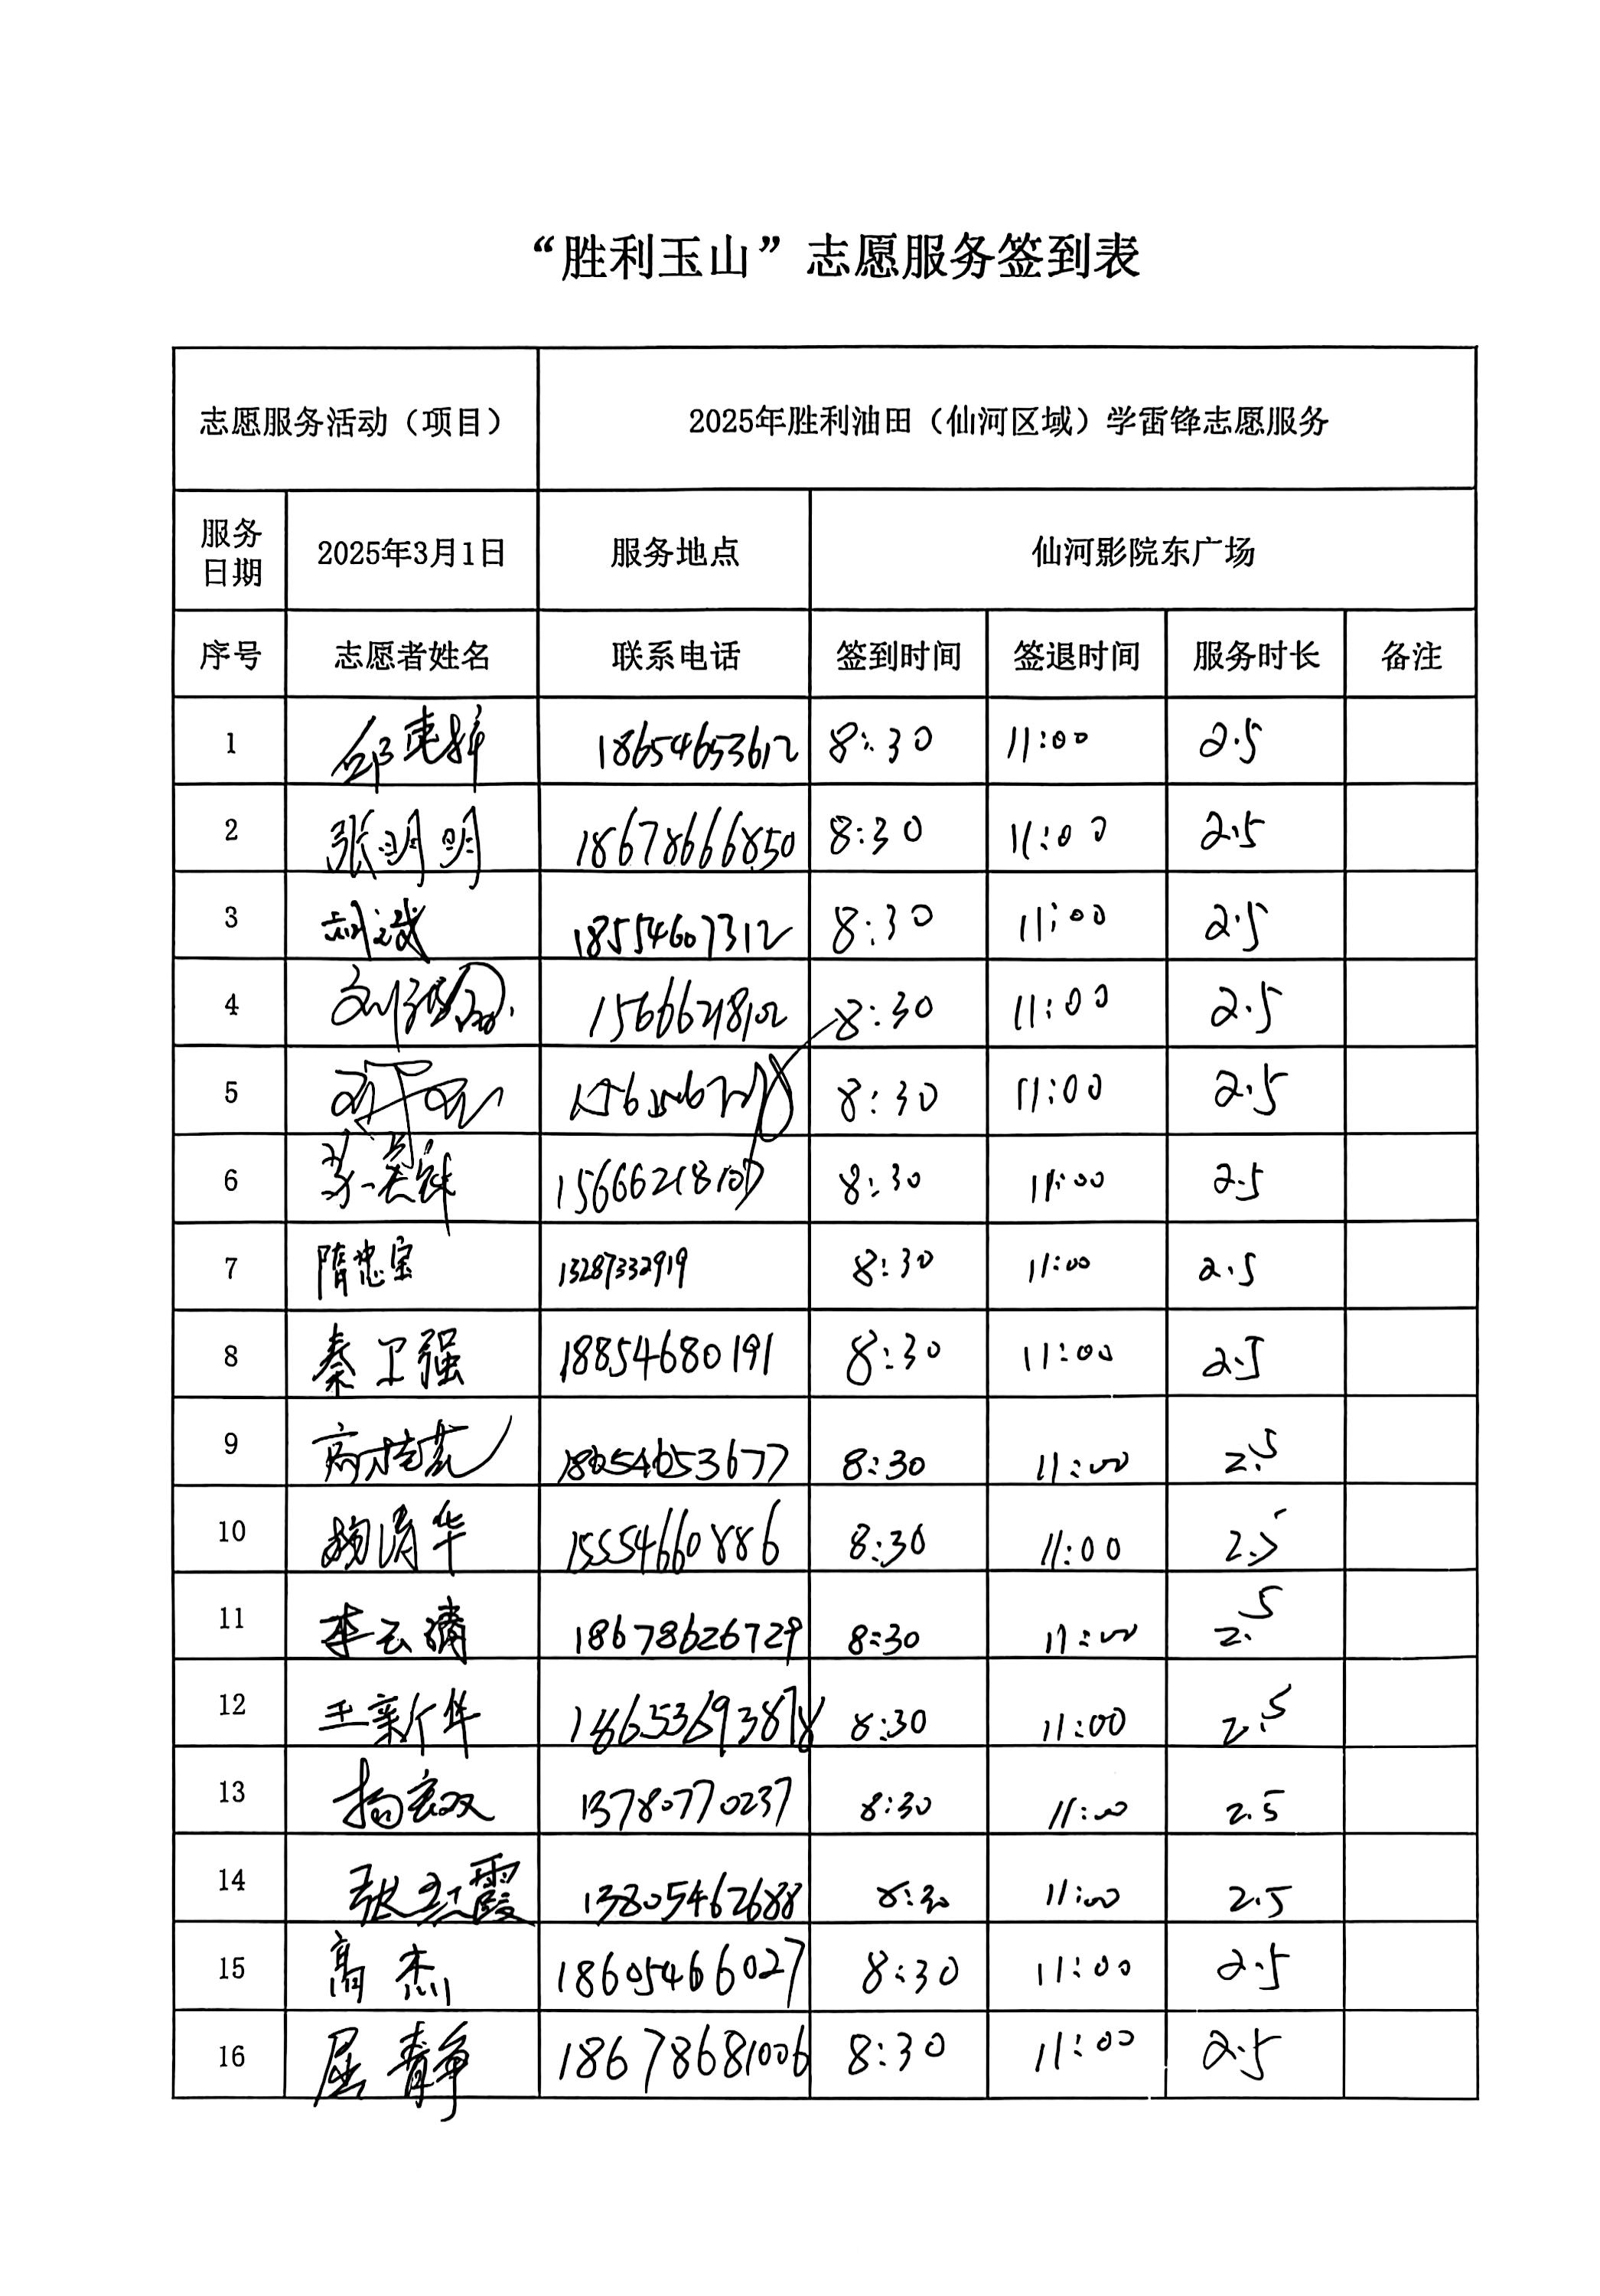 “胜利玉山”志愿服务签到表
志愿服务活动（项目） 2025年胜利油田（仙河区域）学雷锋志愿服务
服务日期 2025年3月1日 服务地点 仙河影院东广场
序号 志愿者姓名 联系电话 签到时间 签退时间 服务时长 备注
1 18654653612 8:30 11:00 2.5
2 张明明 18678666850 8:30 11:00 2.5
3 18554607312 8:30 11:00 2.5
4 15666218102 8:30 11:00 2.5
5 8:30 11:00 2.5
6 8:30 11:00 2.5
7 隋忠宝 13287332919 8:30 11:00 2.5
8 秦卫强 18854680191 8:30 11:00 2.5
9 18654653677 8:30 11:00 2.5
10 杨清华 15554660886 8:30 11:00 2.5
11 李云清 18678626729 8:30 11:00 2.5
12 王新伟 8:30 11:00 2.5
13 杨宏双 13780770237 8:30 11:00 2.5
14 张红霞 13805462688 8:30 11:00 2.5
15 高杰 18605466027 8:30 11:00 2.5
16 屈静 18678681006 8:30 11:00 2.5